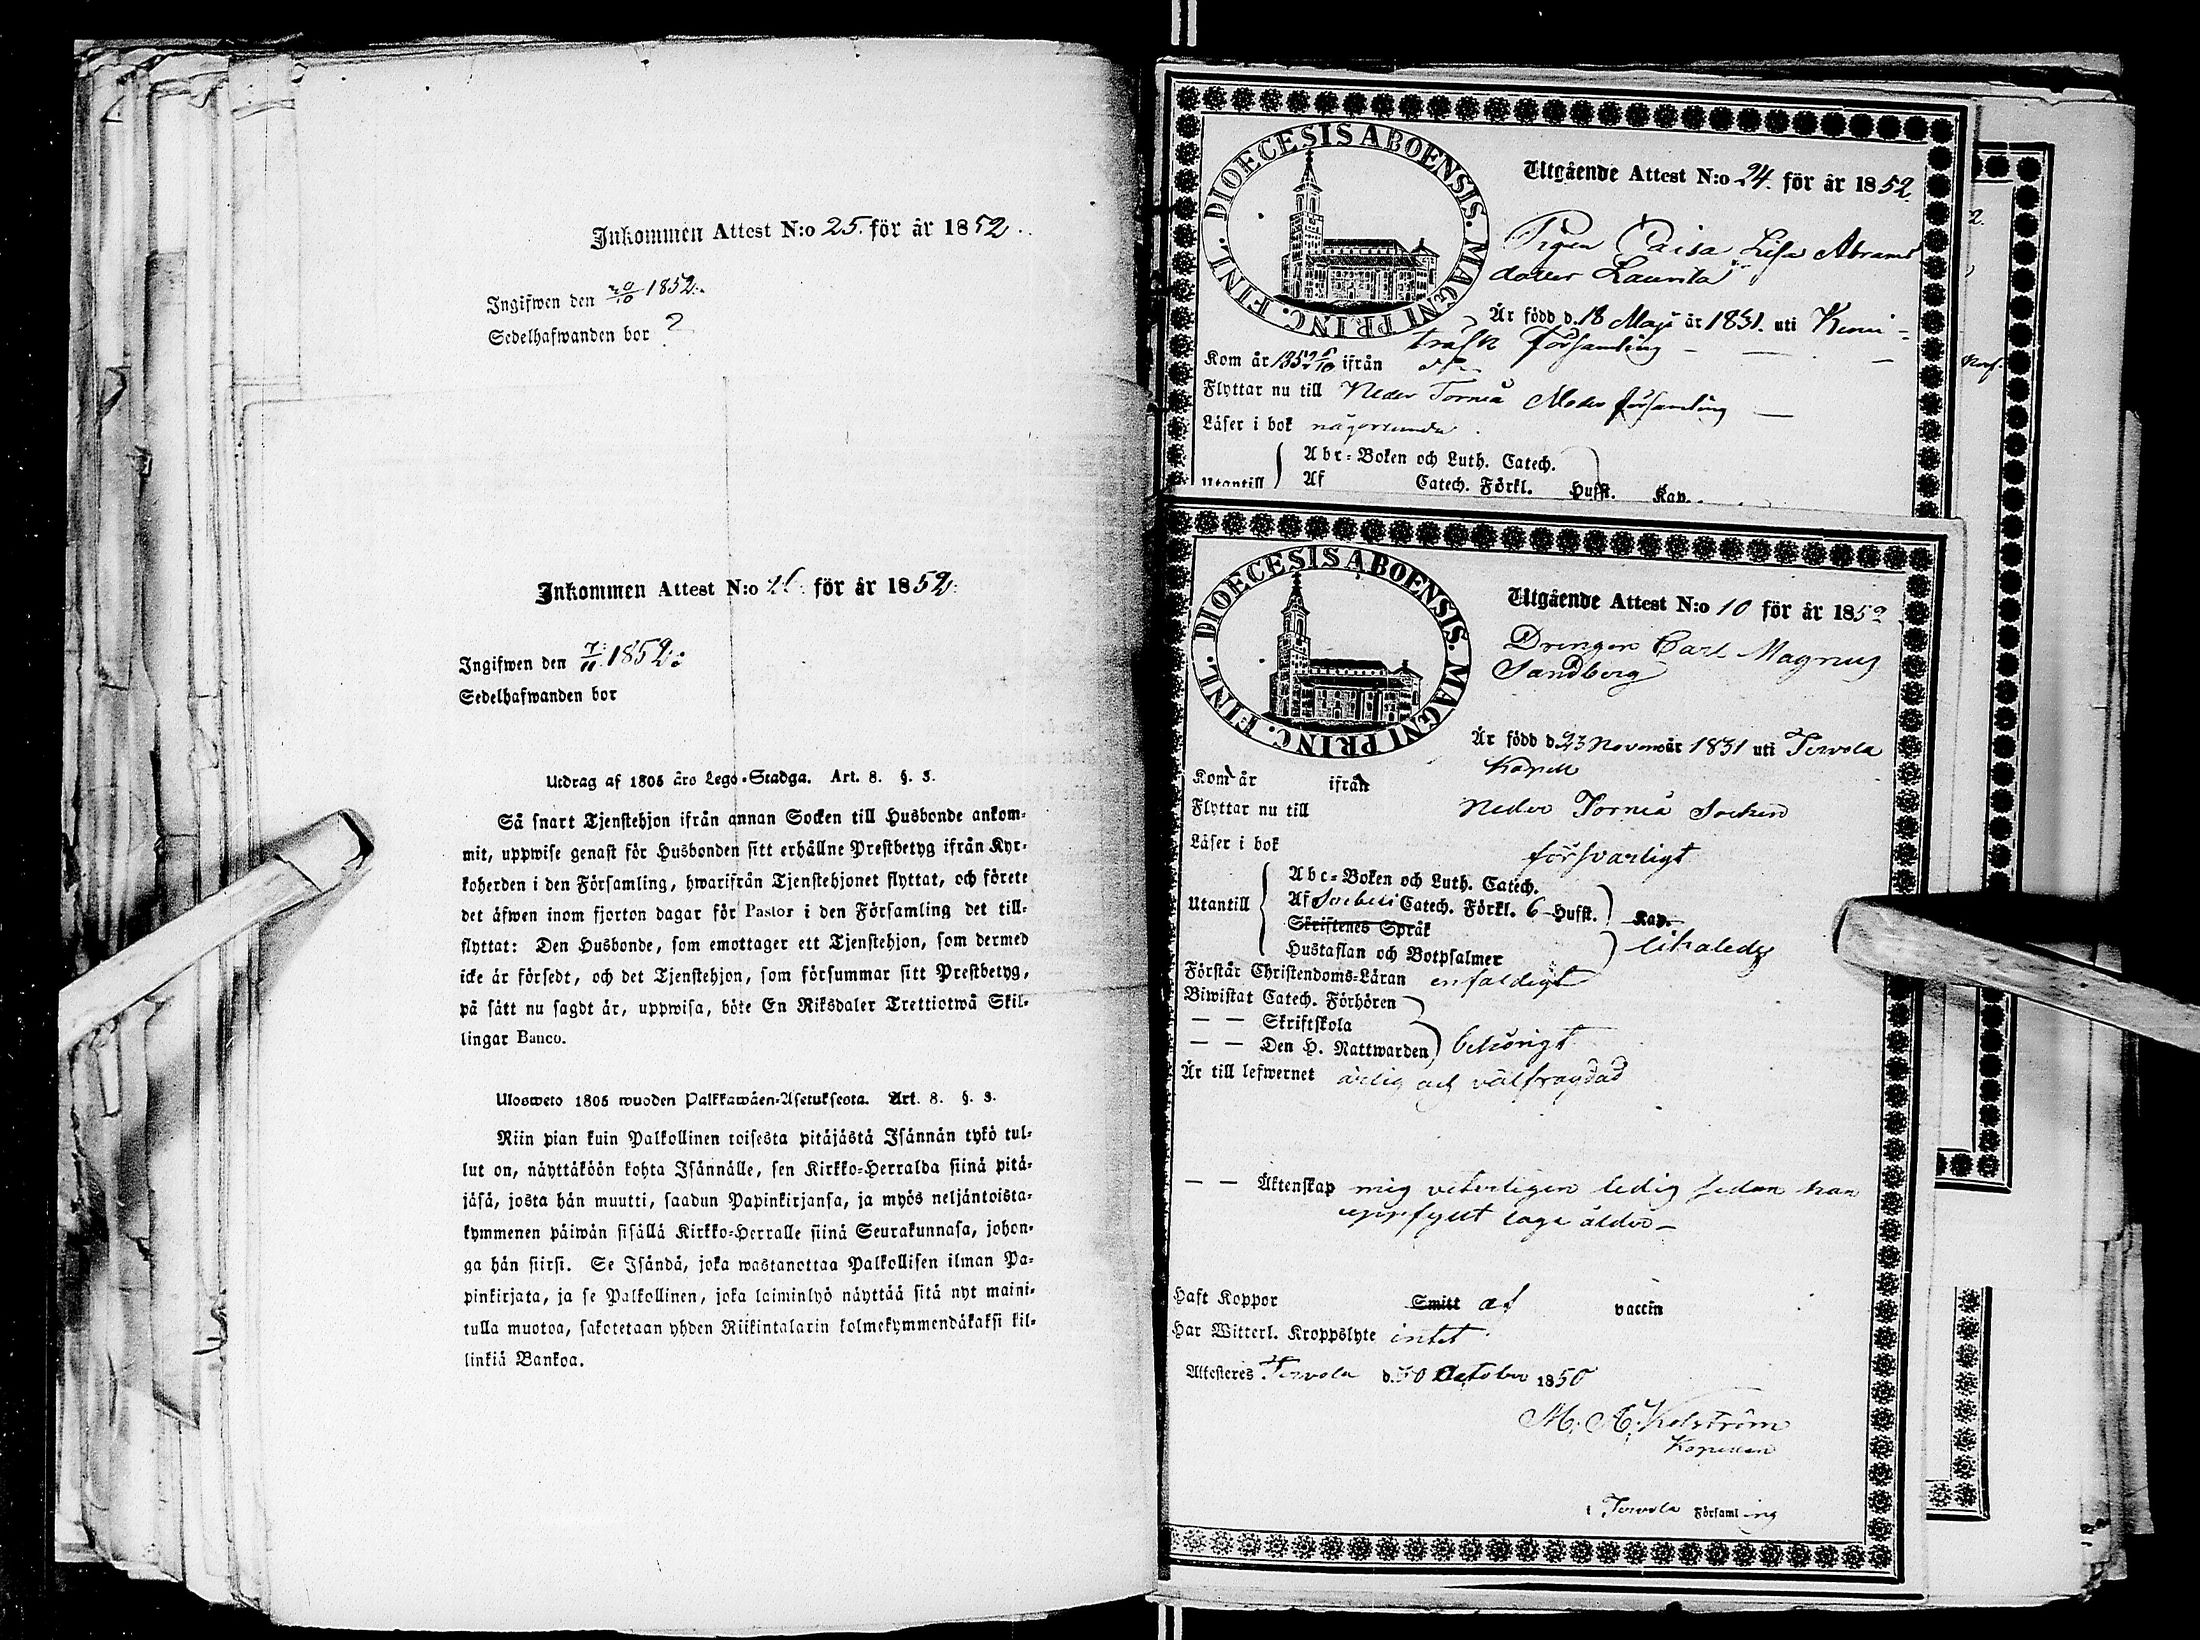 Inkommen Attest N:o 25. för år 1852.
Ingifwen den 20/10 1852.
Sedelhafwanden bor ?
Inkommen Attest N:o för år 1852.
Ingifwen den 7/11 1852.
Sedelhafwanden bor
Utdrag af 1805 års Lego-Stadga. Art. 8. §. 3.
Så snart Tjenstehjon ifrån annan Socken till Husbonde ankom-
mit, uppwise genast för Husbonden sitt erhållne Prestbetyg ifrån Kyr-
koherden i den Församling, hwarifrån Tjenstehjonet flyttat, och förete
det äfwen inom fjorton dagar för Pastor i den Församling det till-
flyttat: Den Husbonde, som emottager ett Tjenstehjon, som dermed
icke är försedt, och det Tjenstehjon, som försummar sitt Prestbetyg,
på sätt nu sagdt är, uppwisa, böte En Riksdaler Trettiotwå Skil-
lingar Banco.
Ulosweto 1805 wuoden Palkkawäen-Asetuksesta. Art. 8. §. 3.
Niin pian kuin Palkollinen toisesta pitäjästä Isännän tykö tul-
lut on, näyttäköön kohta Isännälle, sen Kirkko-Herralda siinä pitä-
jäsä, josta hän muutti, saadun Papinkirjansa, ja myös neljäntoista-
kymmenen päiwän sisällä Kirkko-Herralle siinä Seurakunnasa, johon-
ga hän siirsi. Se Isändä, joka wastanottaa Palkollisen ilman Pa-
pinkirjata, ja se Palkollinen, joka laiminlyö näyttää sitä nyt maini-
tulla muotoa, sakotetaan yhden Riikintalarin kolmekymmendäkaksi kil-
linkiä Bankoa.
DIOECESIS ABOENSIS. MAGNI PRINC. FINL.
Utgående Attest N:o 24. för år 1852.
Pigan Caisa Lisa Abrams
dotter Laurila
Är född d. 18 Maji år 1831. uti Kemi-
träsk församling
Kom år 1852 ifrån
Flyttar nu till Neder Torneå Moder församling
Läser i bok någorlunda
Utantill Abc-Boken och Luth. Catech.
Af Catech. Förkl. Hufst. Kap.
DIOECESIS ABOENSIS. MAGNI PRINC. FINL.
Utgående Attest N:o 10 för år 1852
Drengen Carl Magnus
Sandberg
Är född d. 23 November 1831 uti Tervola
Kapell
Kom år ifrån
Flyttar nu till Neder Torneå Socken
Läser i bok försvarligt
Utantill Abc-Boken och Luth. Catech.
Af Svebelii Catech. Förkl. 6 Hufst. Kap.
Skriftenes Språk
Hustaflan och Botpsalmer likaledes
Förstår Christendoms-Läran enfaldigt
Biwistat Catech. Förhören
— — Skriftskola
— — Den H. Nattwarden behörigt
Är till lefwernet ärlig och välfrägdad
— — Äktenskap mig veterligen ledig sedan han
uppfyllt laga ålder —
Haft Koppor Smitt af vaccin
Har Witterl. Kroppslyte intet
Attesteres Tervola d. 30 October 1850
M. A.
Kapellan
i Tervola Församling